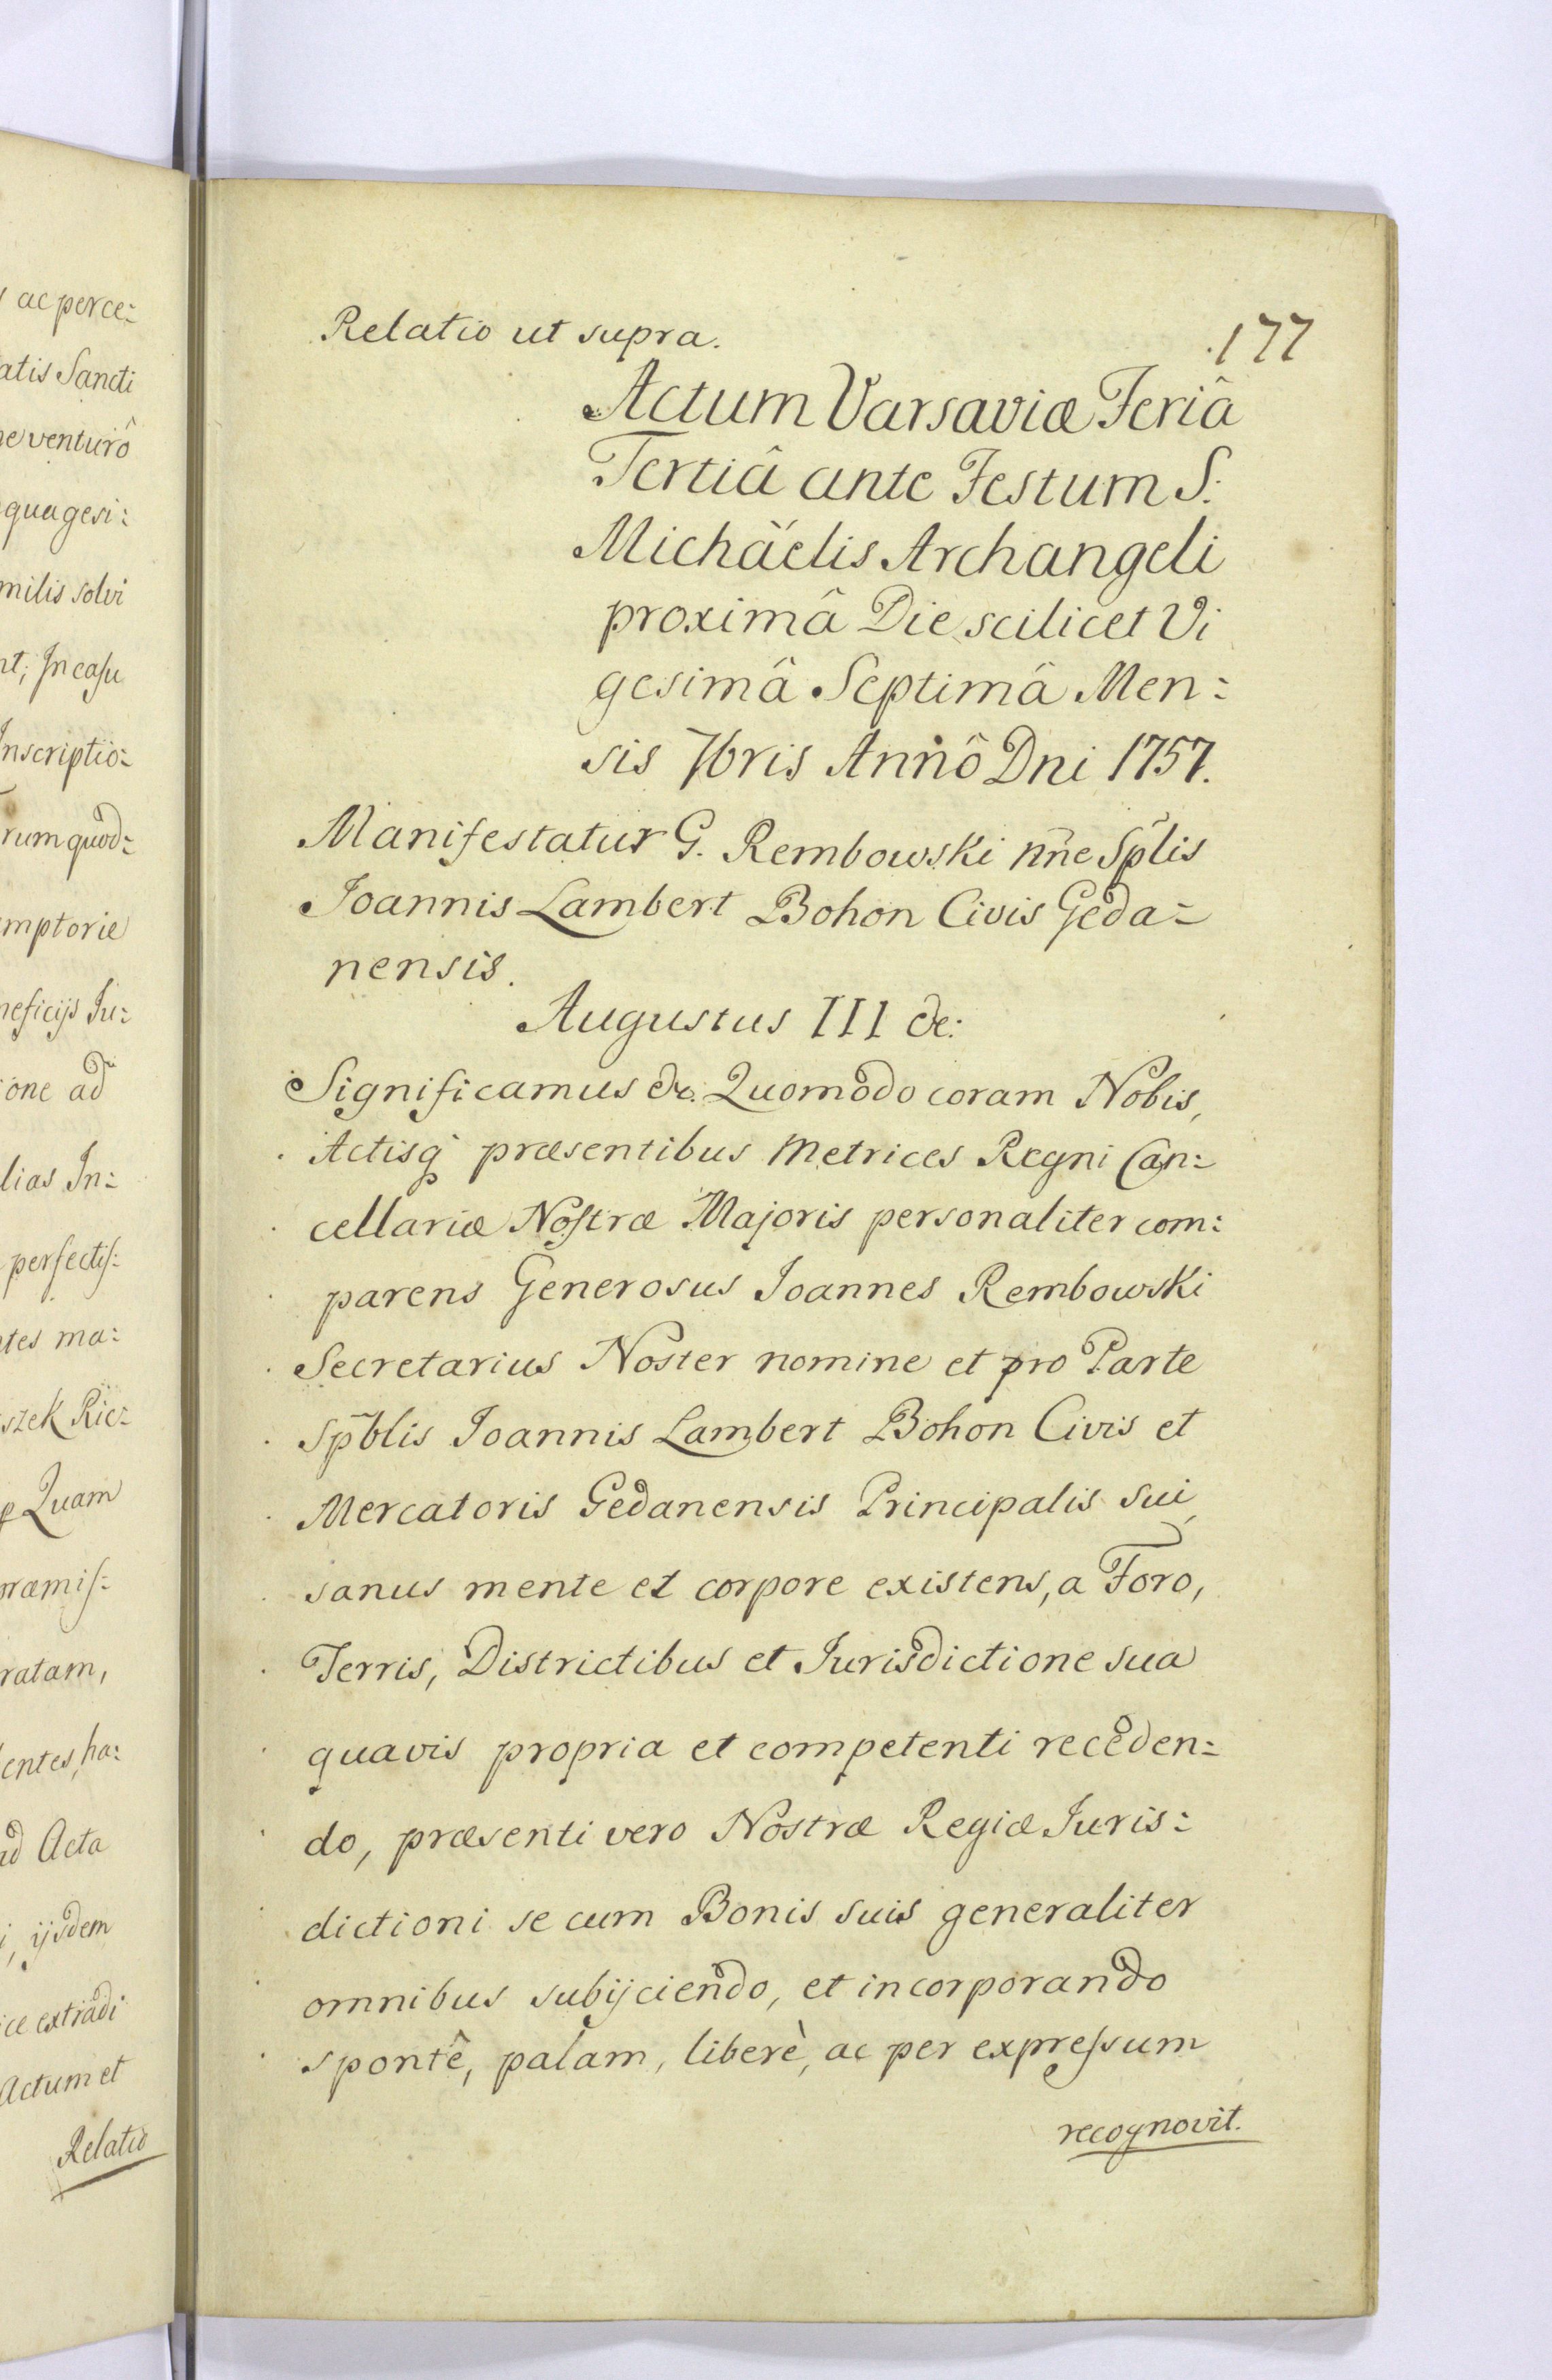 ac perce:
atis Sancti
ne venturô
quagesi:
milis solvi
nt; In casu
Inscriptio:
rum quod:
mptorie
neficijs Iu:
one ad
lias In:
perfectis:
ntes ma:
szek Ric:
Quam
præmis:
ratam,
entes, ha:
ad Acta
i, ijsdem
ice extradi
Actum et
Relatio
Relatio ut supra.
177
Actum Varsaviæ Feriâ
Tertiâ ante Festum S:
Michäelis Archangeli
proximâ Die scilicet Vi
gesimâ Septimâ Men:
sis 7bris Annô Dni 1757.
Manifestatur G. Rembowski nne Splis
Joannis Lambert Bohon Civis Geda=
nensis.
Augustus III &c:
Significamus &c. Quomodo coram Nobis,
Actisq præsentibus Metrices Regni Can:
cellariæ Nostræ Majoris personaliter com:
parens Generosus Joannes Rembowski
Secretarius Noster nomine et pro Parte
Spblis Joannis Lambert Bohon Civis et
Mercatoris Gedanensis Principalis sui,
sanus mente et corpore existens, a Foro,
Terris, Districtibus et Jurisdictione sua
quavis propria et competenti receden=
do, præsenti vero Nostræ Regiæ Juris:
dictioni se cum Bonis suis generaliter
omnibus subijciendo, et incorporando
spontê, palam, liberè, ac per expressum
recognovit.